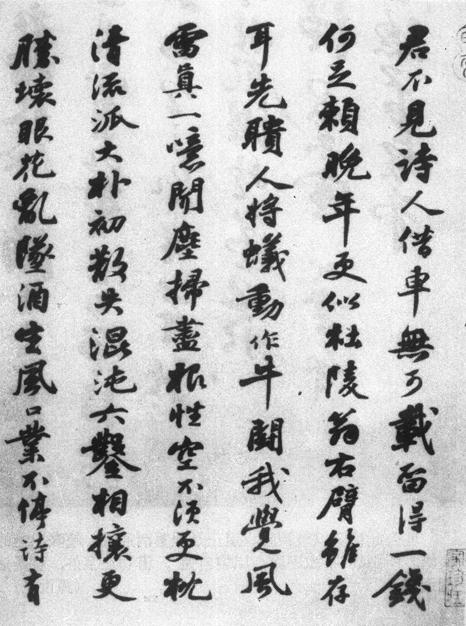 君不見詩人借車無可載留得一錢
何足賴晚年更似杜陵翁右臂雖存
耳先聵人將蟻動作牛鬭我覺風
雷真一噫聞塵掃盡根性空不須更枕
清流派大朴初散失混沌六鑿相攘更
勝壞眼花亂墜酒生風口業不停詩有